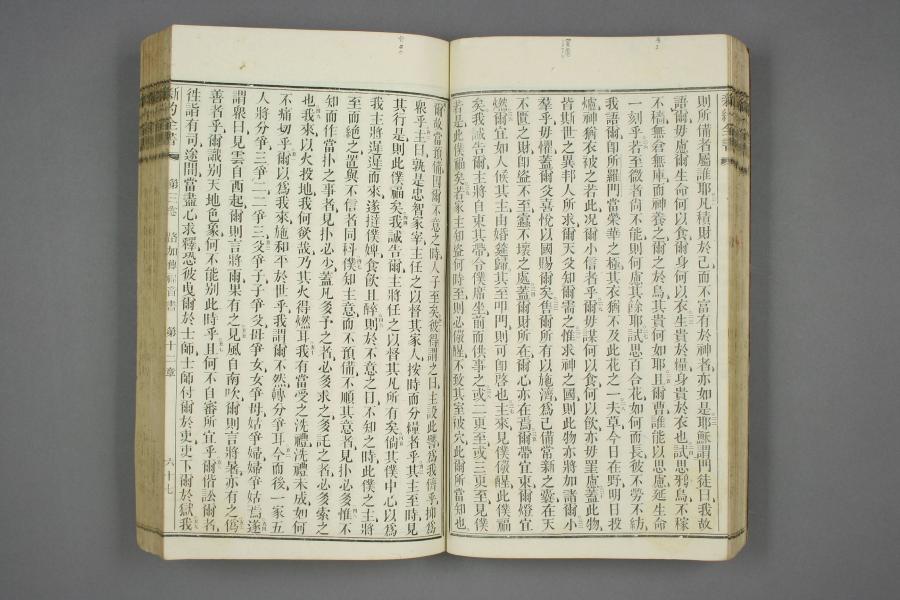 則所備者屬誰耶凡積財於己而不富有於神者亦如是耶穌謂門徒曰我故
語爾毋慮爾生命何以食爾身何以衣生貴於糧身貴於衣也試思鴉鳥不稼
不穡無倉無庫而神養之爾之於鳥其貴何如耶且爾曹誰能以思慮延生命
一刻乎若至微者尚不能則何慮其餘耶試思百合花如何而長彼不勞不紡
我語爾即所羅門當榮華之極其衣猶不及此花之一夫草今日在野明日投
爐神猶衣被之若此况爾小信者乎爾毋謀何以食何以飲亦毋罣慮蓋此物
皆斯世之異邦人所求爾天父知爾需之惟求神之國則此物亦將加諸爾小
羣乎毋懼蓋爾父喜悅以國賜爾矣售爾所有以施濟爲己備常新之囊在天
不匱之財即盜不至蠧不壞之處蓋爾財所在爾心亦在焉爾帶宜束爾燈宜
燃爾宜如人候其主由婚筵歸其至叩門則可即啓也主來見僕儆醒此僕福
矣我誠告爾主將自束其帶令僕席坐前而供事之或二更至或三更至見僕
若是此僕福矣若家主知盜何時至則必儆醒不致其室被穴此爾所當知也
爾故當預備因爾不意之時人子至矣彼得謂之曰主設此譬爲我儕乎抑爲
衆乎主曰孰是忠智家宰主任之以督其家人按時而分糧者乎其主至時見
其行是則此僕福矣我誠告爾主將任之以督其凡所有矣倘其僕中心以爲
我主將遲遲而來遂撻僕婢食飲且醉則於不意之日不知之時此僕之主將
至而絶之置與不信者同科僕知主意而不預備不順其意者見扑必多惟不
知而作當扑之事者見扑必少蓋凡多予之者必多求之多託之者必多索之
也我來以火投地我何欲哉乃其火得燃耳我有當受之洗禮洗禮未成如何
不痛切乎爾以爲我來施和平於世乎我謂爾不然轉分爭耳今而後一家五
人將分爭三爭二二爭三父爭子子爭父母爭女女爭母姑爭婦婦爭姑焉遂
謂衆曰見雲自西起爾則言將雨果有之見風自南吹爾則言將暑亦有之僞
善者乎爾識別天地色象何不能別此時乎且何不自審所宜乎爾偕訟爾者
徃詣有司途間當盡心求釋恐彼曳爾於士師士師付爾於吏吏下爾於獄我
新約全書 第三卷 路加傳福音書 第十二章 六十七